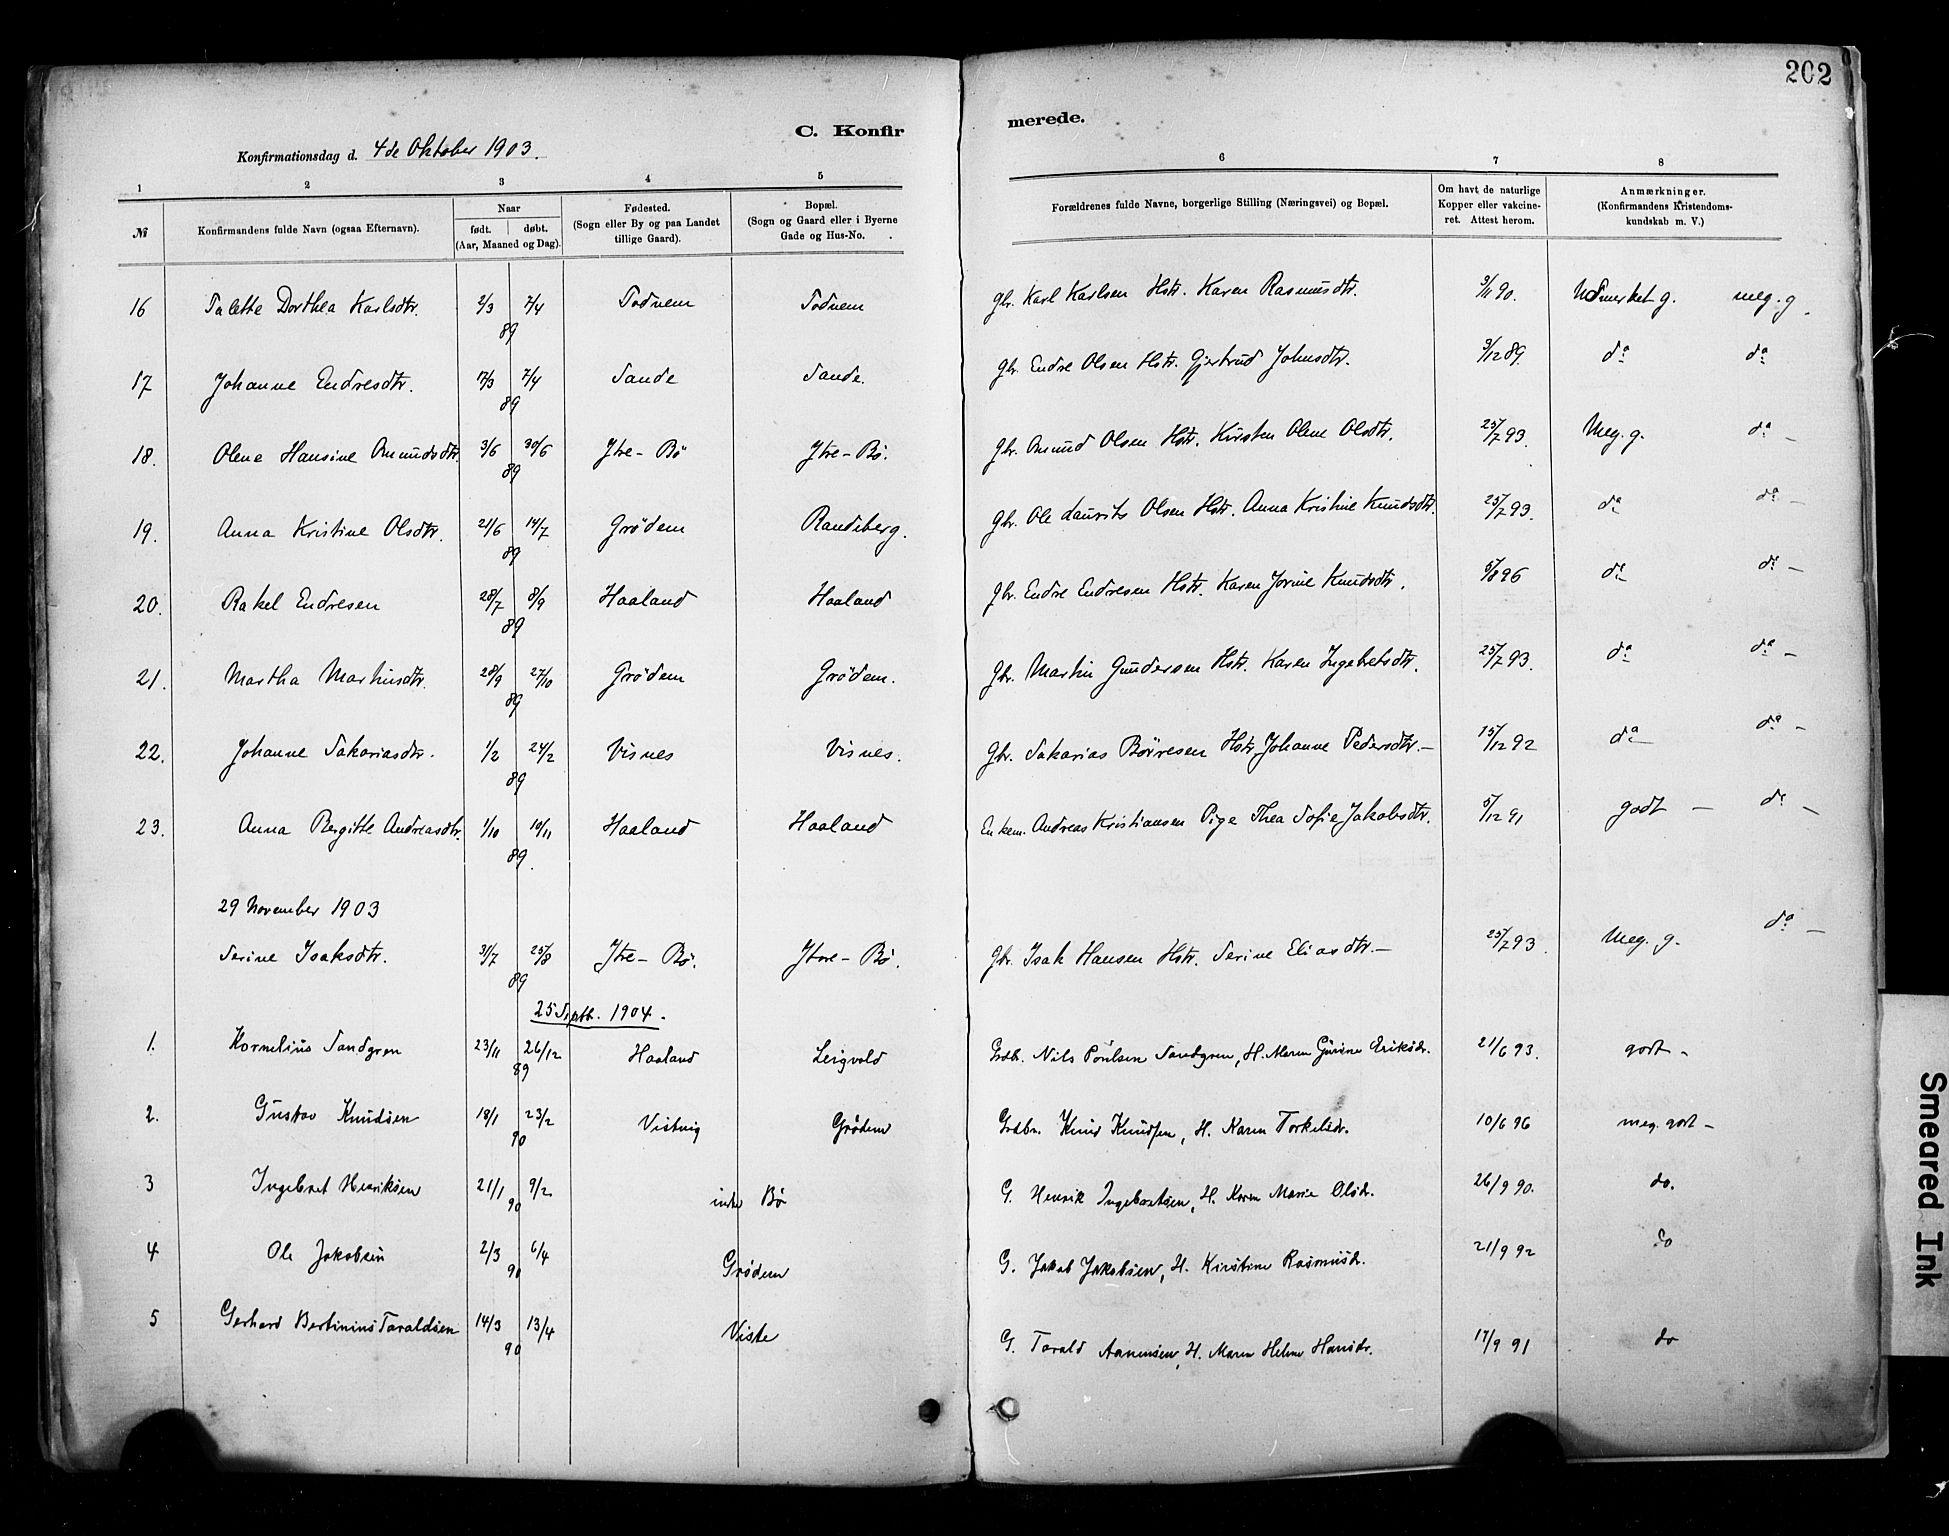 202
C. Konfirmerede.
Konfirmationsdag d. 4de Oktober 1903.
1 2 3 4 5 6 7 8
№ Konfirmandens fulde Navn (ogsaa Efternavn). Naar født. døbt. (Aar, Maaned og Dag). Fødested. (Sogn eller By og paa Landet tillige Gaard). Bopæl. (Sogn og Gaard eller i Byerne Gade og Hus-No. Forældrenes fulde Navne, borgerlige Stilling (Næringsvei) og Bopæl. Om havt de naturlige Kopper eller vakcineret. Attest herom. Anmærkninger. (Konfirmandens Kristendomskundskab m. V.)
16 Talette Dorthea Karlsdtr. 2/3 7/4 89 Todnem Todnem Gbr. Karl Karlsen Hstr. Karen Rasmusdtr. 3/11 90. Udmerket g. meg. g.
17 Johanne Endresdtr. 17/3 7/4 89 Sande Sande. Gbr. Endre Olsen Hstr. Gjertrud Johnsdtr. 3/12 89. do do
18. Olene Hansine Omundsdtr. 3/6 30/6 89 Ytre-Bö Ytre-Bö. Gbr. Omund Olsen Hstr. Kirsten Olene Olsdtr. 25/7 93. Meg. g. do -
19. Anna Kristine Olsdtr. 21/6 14/7 89 Grödem Randeberg. Gbr. Ole Laurits Olsen Hstr. Anna Kristine Knudsdtr. 25/7 93. do do -
20. Rakel Endresen 28/7 8/9 89 Haaland Haaland Gbr. Endre Endresen Hstr. Karen Jorine Knudsdtr. 5/8 96 do do -
21. Martha Martinsdtr. 28/9 27/10 89 Grödem Grödem. Gbr. Martin Gundersen Hstr. Karen Ingebretsdtr. 25/7 93. do do -
22. Johanne Sakariasdtr. 1/2 24/2 89 Visnes Visnes. Gbr. Sakarias Börresen Hstr. Johanne Pedersdtr. - 15/12 92 do do -
23. Anna Bergitte Andreasdtr. 1/10 10/11 89. Haaland Haaland Enkem. Andreas Kristiansen Pige Thea Sofie Jakobsdtr. 5/12 91 godt - do -
29 November 1903
Serine Isaksdtr. 31/7 25/8 89 Ytre-Bö. Ytre-Bö. Gbr. Isak Hansen Hstr. Serine Eliasdtr. - 25/7 93. Meg. g. do -
25 Septb. 1904.
1. Kornelius Sandgren 23/11 26/12 89 Haaland Leigvold Grdb. Nils Poulsen Sandgren, H. Maren Gurine Eriksdr. 21/6 93. godt -
2. Gustav Knudsen 18/1 23/2 90 Vistvig Grödem Grdbr. Knud Knudsen, H. Karen Torkelsdr. 10/6 96 meg. godt -
3 Ingebret Henriksen 21/1 9/2 90 indre Bö G. Henrik Ingebretsen, H. Karen Marie Olsdr. 26/9 90. do.
4 Ole Jakobsen 2/3 6/4 90 Grödem G. Jakob Jakobsen, H. Kirstine Rasmusdr. 21/9 92 do
5 Gerhard Bertinius Taraldsen 14/3 13/4 90 Viste G. Tarald Aanensen, H. Maren Helene Hansdr. 17/9 91 do
Smeared Ink